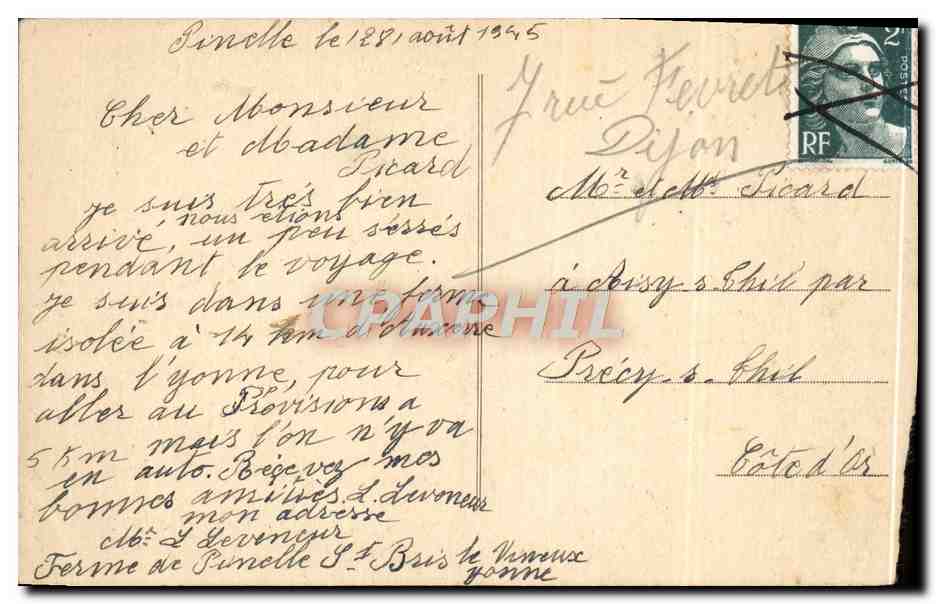 Pinelle le 28 août 1945
Cher Monsieur
et Madame
Picard
je suis très bien
arrivé, nous etions un peu sérrés
pendant le voyage.
je suis dans une ferme
isolée à 14 km d'Auxerre
dans l'yonne, pour
aller au Provisions a
5 Km mais l'on n'y va
en auto. Recevez mes
bonnes amitiés L. Leveneur
mon adresse
Mr L Leveneur
Ferme de Pinelle St Bris le Vineux
yonne
7 rue Fevret
Dijon
Mr et Me Picard
à Aisy s. Thil par
Précy-s-Thil
Côte d'Or
2F
POSTES
RF
CPAPHIL